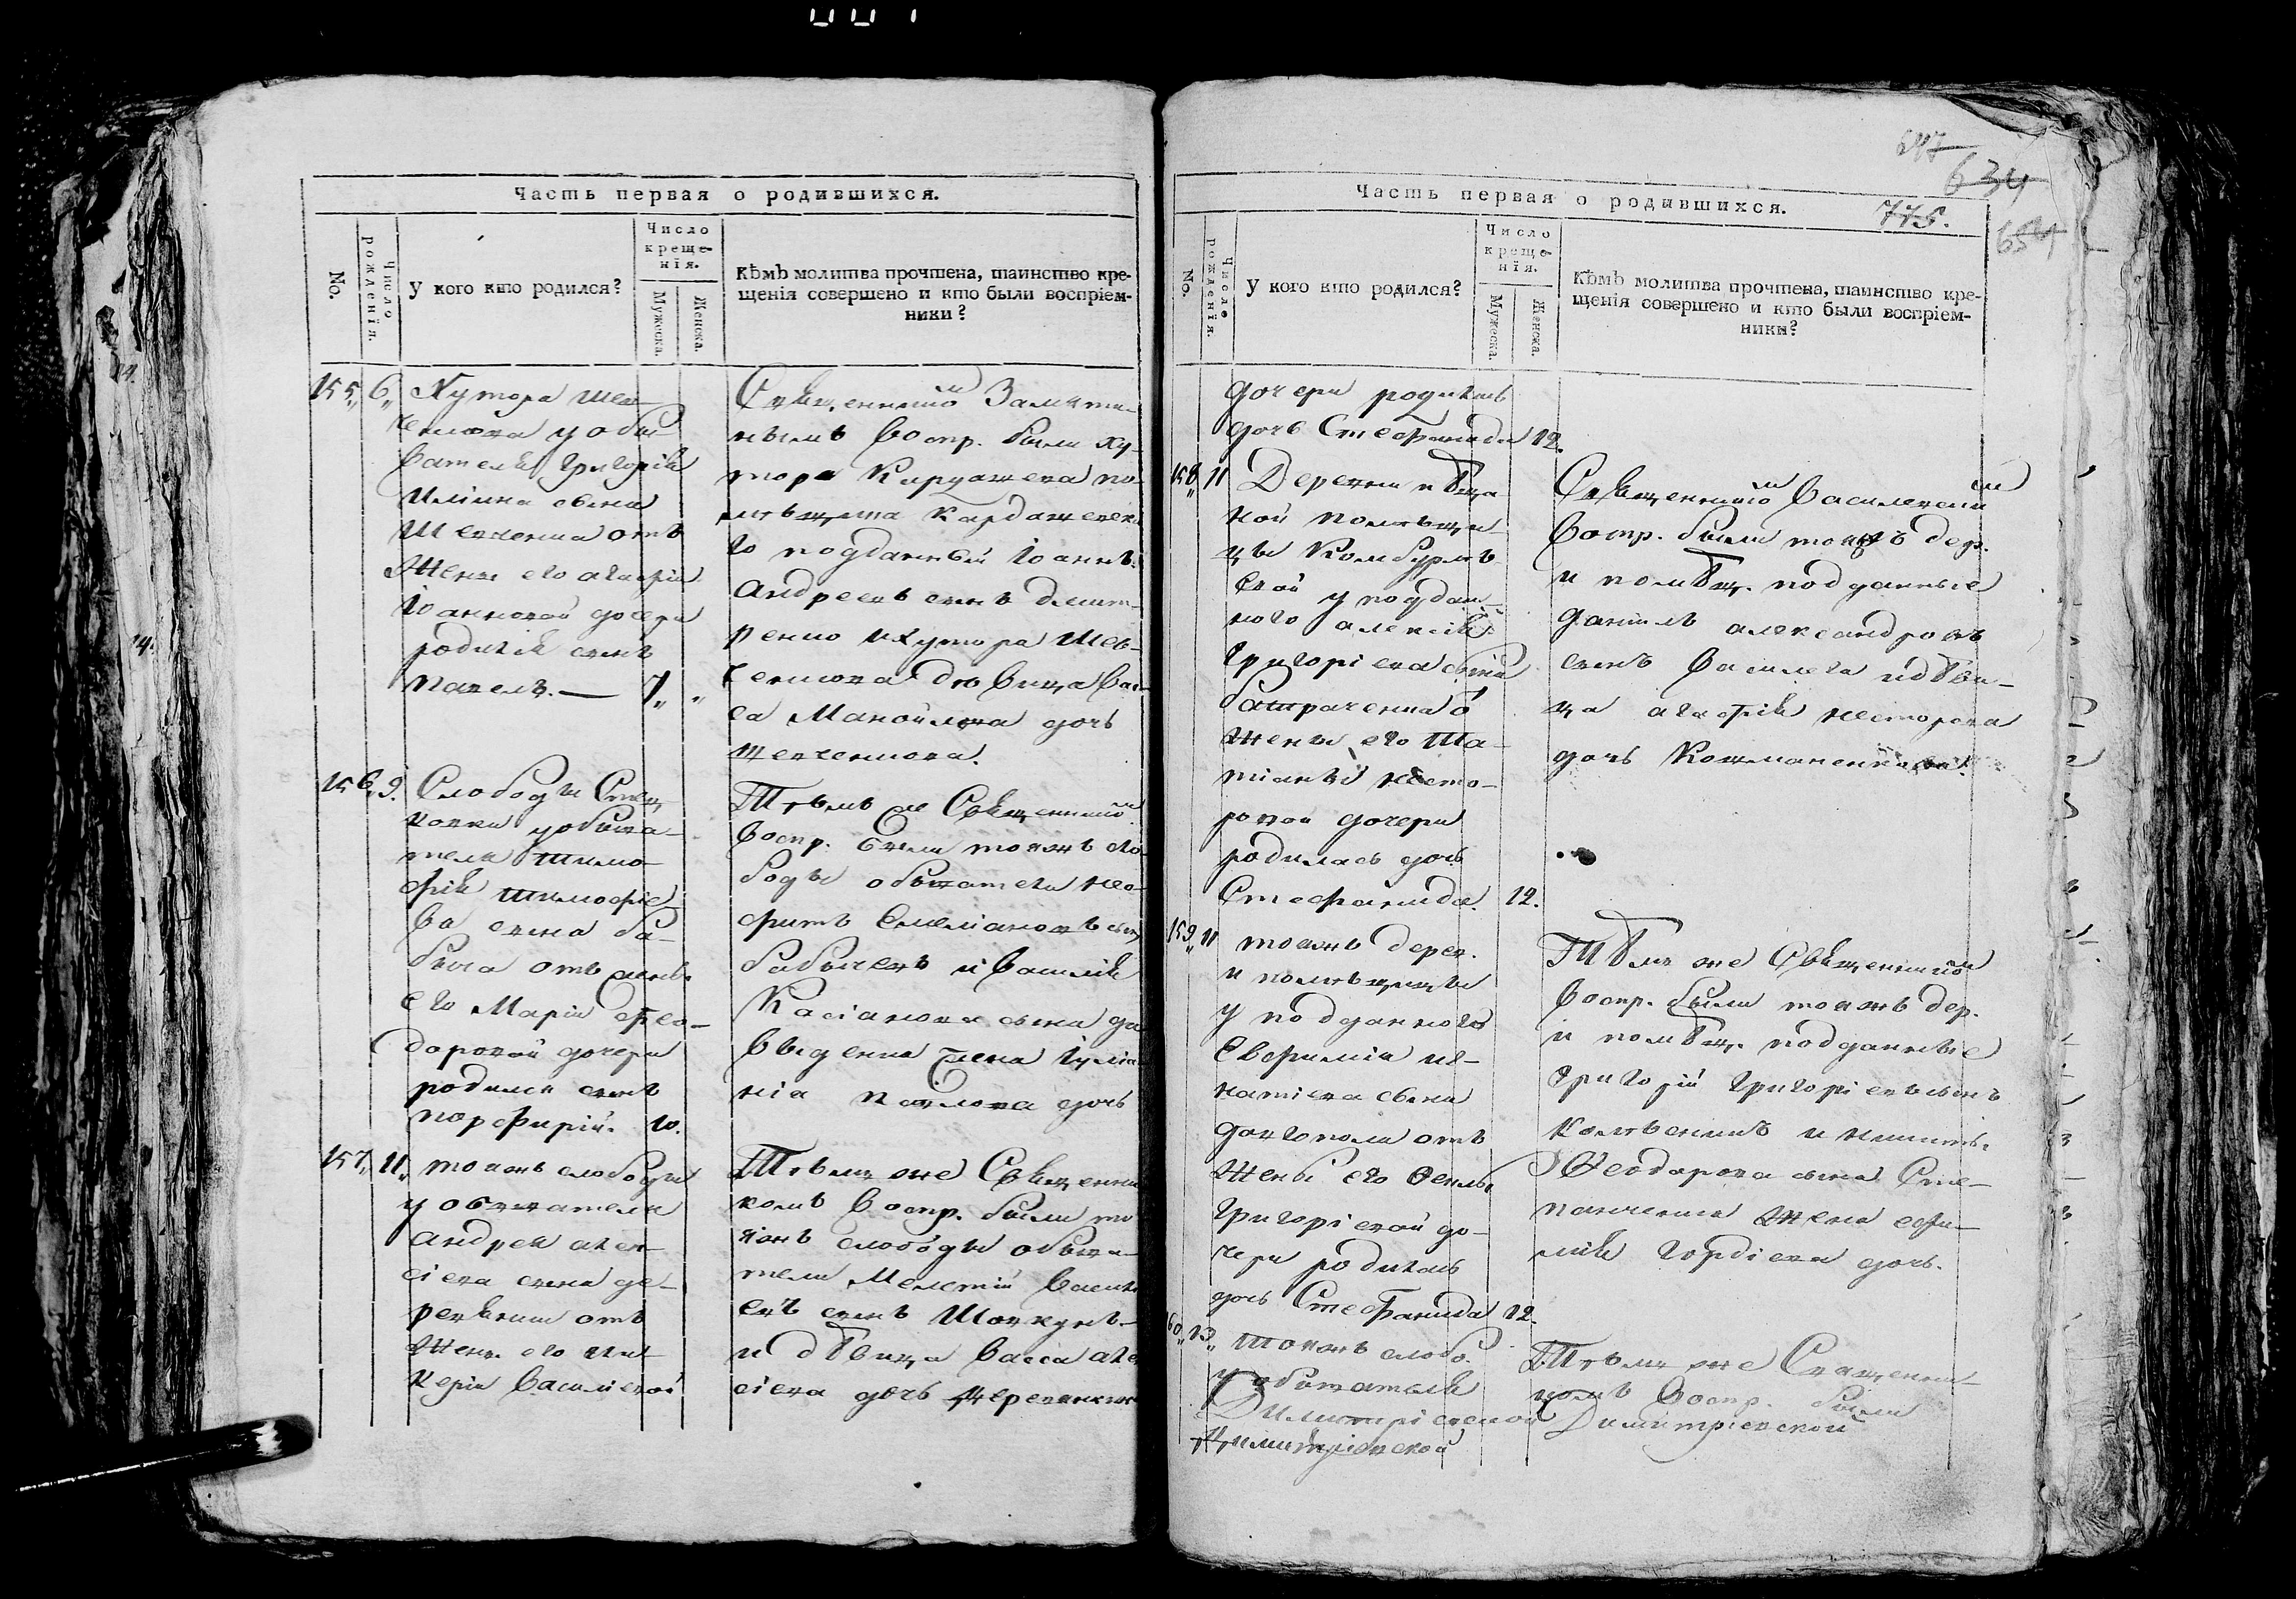 647
634
775.
654
Часть первая о родившихся.
No.
Число рожденія.
У кого кто родился?
Число креще-
нія.
Мужеска.
Женска.
Кѣмъ молитва прочтена, таинство кре-
щенія совершено и кто были воспріем-
ники?
155„ 6„ Хутора Шев-
ченкова у обы-
вателя Григорія
сына
Шевченка отъ
жены его Агафіи
Іоанновой дочери
родился сынъ
Павелъ. — 7„ „
Священникомъ
Воспр. были ху-
тора
Кардашевск
го подданный Іоаннъ
Андреевъ сынъ Дмит-
ренко и хутора Шев-
ченкова дѣвица Вас-
са Манойлова дочь
Шевченкова.
156„ 9. Слободы
у обыва-
теля Тимо-
фія Тимофіе
ва сына Ба-
быча отъ жены
его Маріи Фео-
доровой дочери
родился сынъ
Порфирій. 10.
Тѣмъ же Священникомъ
воспр. были тояжъ сло-
боды обыватели Нео-
фитъ Емеліановъ сынъ
и Василія
Касіанова сына Да
выденка жена Іуліа
нія Павлова дочь
157„ 11„ тояжъ слободы
у обывателя
Андрея Алек-
сіева сына Де-
ревянки отъ
жены его Гли-
керіи Василіевой
Тѣмъ же Священни
комъ воспр. были то
яжъ слободы обыва-
тели Мелетій Василі
евъ сынъ Шовкунъ
и дѣвица Васса Але
сіева дочь Деревянкова
Часть первая о родившихся.
No.
Число рожденія.
У кого кто родился?
Число креще-
нія.
Мужеска.
Женска.
Кѣмъ молитва прочтена, таинство кре-
щенія совершено и кто были воспріем-
ники?
дочери родилась
дочь Стефанида 12.
158„ 11 Деревни
кой помѣщи-
цы Комбурлѣ
евой у поддан-
ного Алексія
Григоріева сына
жены его Та-
тіаны Несто-
ровой дочери
родилась дочь
Стефанида. 12.
Священникомъ Василевскимъ
воспр. были тояжъ дер.
и помѣщ. подданные
Даніилъ Александровъ
сынъ и дѣви-
ца Агафія Несторова
дочь
159„ 11 тояжъ дерев.
и помѣщицы
у подданного
Евфимія Иг-
натіева сына
Довгопола отъ
жены его Феклы
Григоріевой до-
чери родилась
дочь Стефанида 12.
Тѣмъ же Священникомъ
воспр. были тояжъ дер.
и помѣщ. подданные
Григорій Григоріевъ сынъ
и Никиты
Феодорова сына Сте-
панченка жена Ефи-
мія Гордіева дочь.
60„ 13„ тояжъ слобо.
у обывателя
Димитріевской
Димитріевской
Тѣмъ же Священни-
комъ воспр. были
Димитріевской